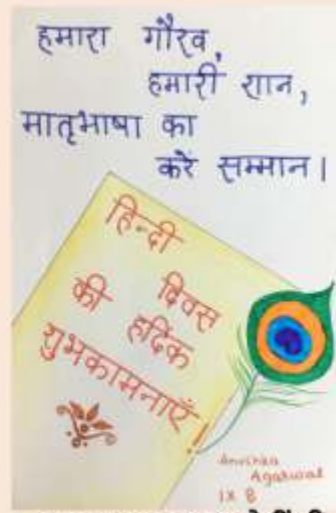 हमारा गौरव,
हमारी शान,
मातृभाषा का
करें सम्मान।
हिन्दी
दिवस
की हर्दिक
शुभकामनाएँ!
Anushka
Agarwal
IX B